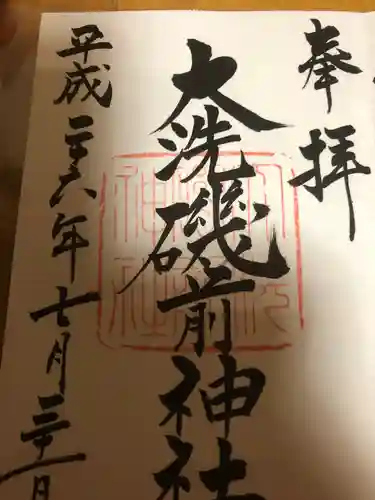 奉拝
大洗磯前神社
平成二十六年七月三十一日